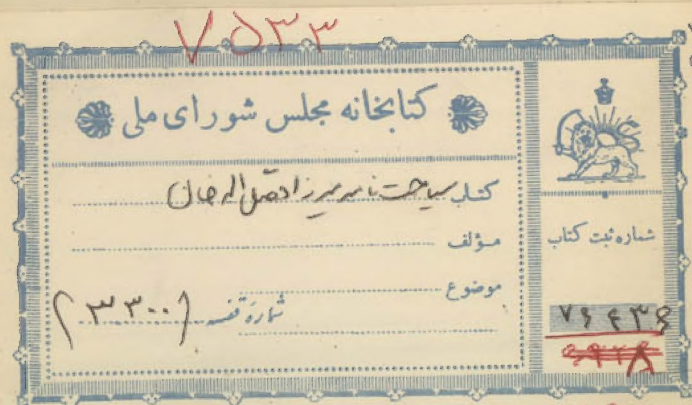 ۷۵۳۳
کتابخانه مجلس شورای ملی
کتاب سیاحت نامه میرزا فضل اله خان
مؤلف
موضوع
شماره قفسه (۳۳۰۰)
شماره ثبت کتاب
۷۶۴۳۶